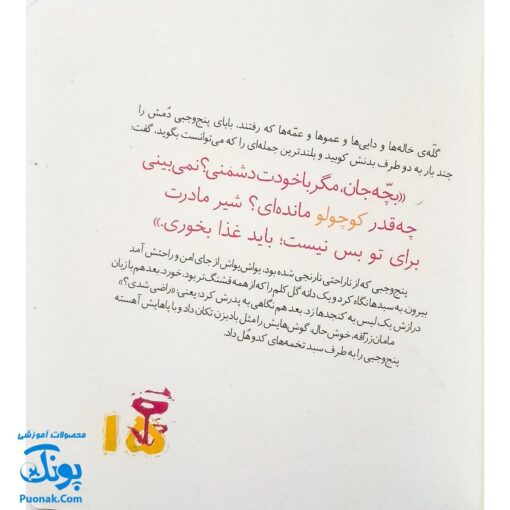 گلّه‌ی خاله‌ها و دایی‌ها و عموها و عمّه‌ها که رفتند، بابای پنج‌وجبی دُمش را
چند بار به دو طرف بدنش کوبید و بلندترین جمله‌ای را که می‌توانست بگوید، گفت:
«بچّه‌جان، مگر با خودت دشمنی؟ نمی‌بینی
چه‌قدر کوچولو مانده‌ای؟ شیر مادرت
برای تو بس نیست؛ باید غذا بخوری.»
پنج‌وجبی که از ناراحتی نارنجی شده بود، یواش‌یواش از جای امن و راحتش آمد
بیرون، به سبدها نگاه کرد و یک دانه گل کلم را که از همه قشنگ‌تر بود، خورد. بعد هم با زبان
درازش یک لیس به کنجدها زد. بعد هم نگاهی به پدرش کرد؛ یعنی: «راضی شدی؟»
مامان زرّافه، خوش‌حال، گوش‌هایش را مثل بادبزن تکان داد و با پاهایش آهسته
پنج‌وجبی را به طرف سبد تخمه‌های کدو هُل داد.
۱۵
محصولات آموزشی
پونک
Puonak.Com